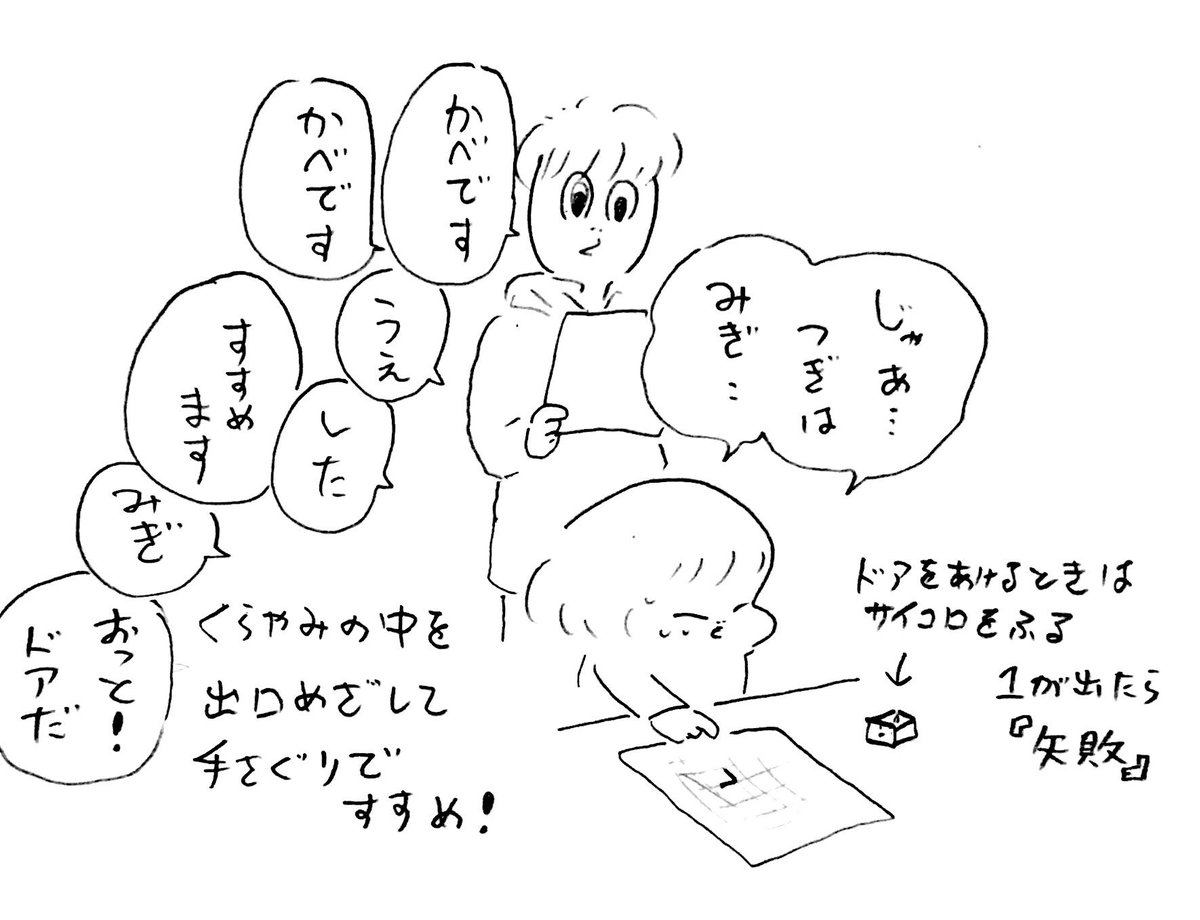 じゃあ…
つぎは
みぎ‥
かべです
うえ
かべです
した
すすめ
ます
みぎ
おっと!
ドアだ
くらやみの中を
出口めざして
手さぐりで
すすめ!
ドアをあけるときは
サイコロをふる
↓
1が出たら
『失敗』